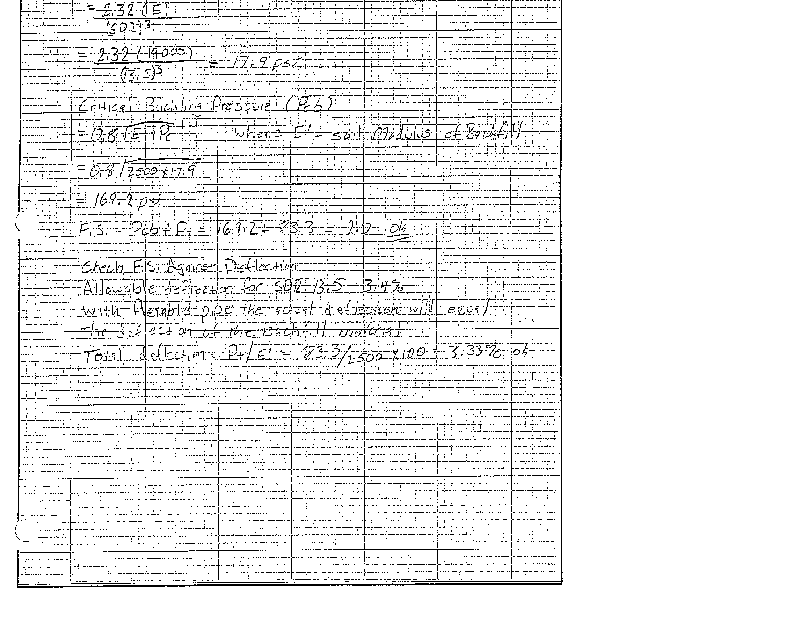 = 2.32 (E)
(SDR)³
= 2.32 (19000)
(13.5)³ = 17.9 psi
Critical Buckling Pressure (Pcb)
= 0.8 √E' Pc where E' = soil Modulus of Backfill
= 0.8 √2500 x 17.9
= 169.2 psi
F.S. = Pcb ÷ Pt = 169.2 ÷ 83.3 = 2.0 ok
Check F.S. Against Deflection
Allowable deflection for SDR 13.5 = 3.4%
With flexible pipe the
the selection of the backfill material
Total deflection = Pt/E' = 83.3/2500 x 100 = 3.33% ok